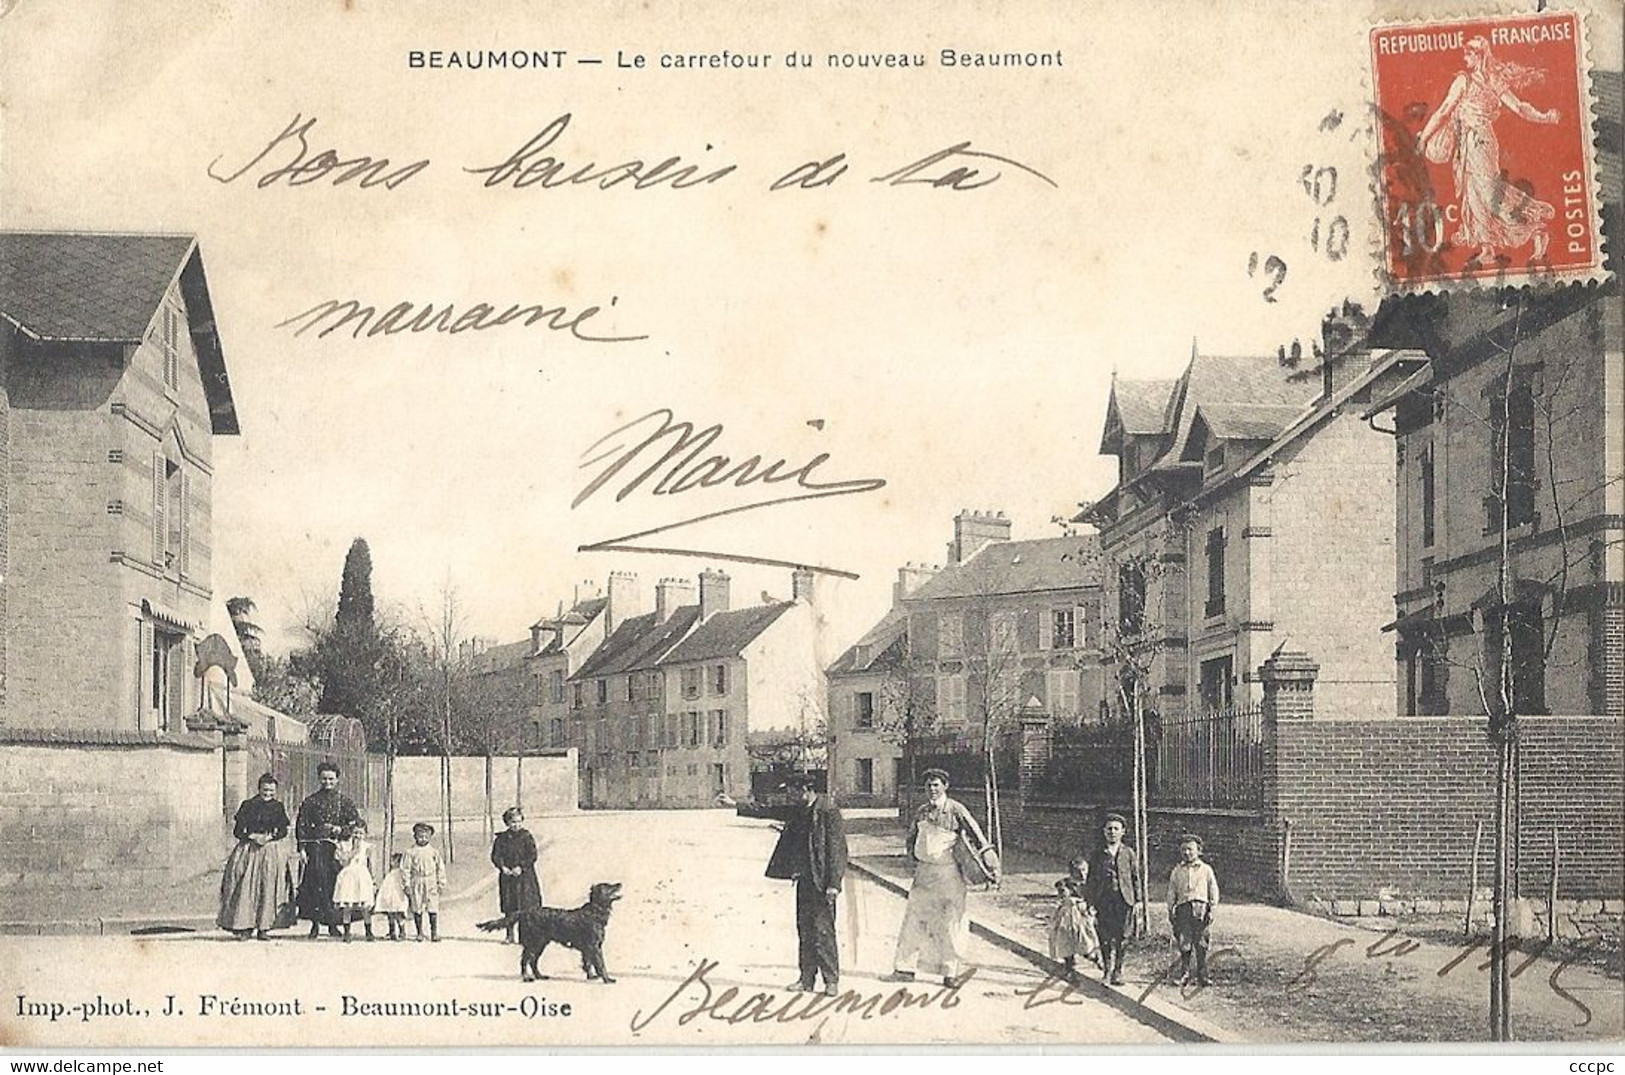 BEAUMONT — Le carrefour du nouveau Beaumont
RÉPUBLIQUE FRANÇAISE
10c
POSTES
Bons baisers de ta
marraine
Marie
Beaumont le 15 8bre
Imp.-phot., J. Frémont - Beaumont-sur-Oise
cccpc